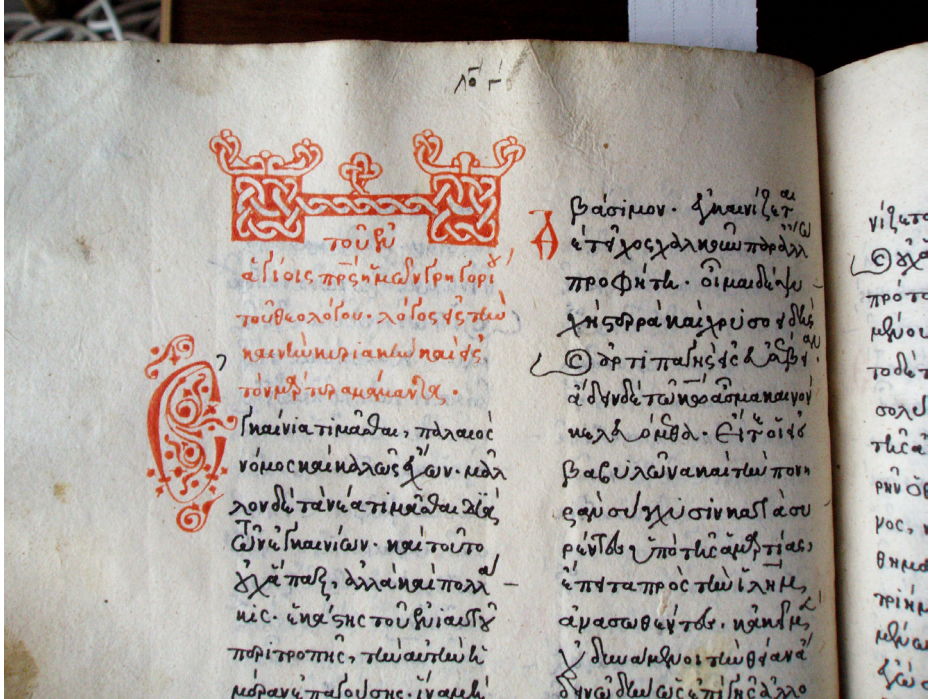 λό γ
τοῦ ἐν
ἁγίοις πρς ἡμῶν γρηγορί
τοῦ θεολόγου· λόγος εἰς τὴν
καινὴν κυριακὴν καὶ εἰς
τὸν μάρτυρα μάμαντα·
Ἐγκαίνια τιμᾶσθαι, παλαιὸς
νόμος καὶ καλῶς ἔχων· μᾶλ
λον δὲ τὰ νέα τιμᾶσθαι διὰ
τῶν ἐγκαινίων· καὶ τοῦτο
οὐχ ἅπαξ, ἀλλὰ καὶ πολλά
κις· ἑκάστης τοῦ ἐνιαυτοῦ
περιτροπῆς, τὴν αὐτὴν ἡ
μέραν ἐπαγούσης, ἵνα μὴ
βάσιμον· ἐγκαινίζεται
τεῖχος χαλκοῦν παρ' ἄλλω
προφήτη· οἶμαι δὲ ψυ
χὴ στερρὰ καὶ χρυσοειδὴς
ἄρτι παγεῖσα εἰς εὐσέβειαν·
ἄδειν δὲ τῶ κω ἆσμα καινὸν
κελευόμεθα· Εἴτε οἱ εἰς
βαβυλῶνα καὶ τὴν πονη
ρὰν σύγχυσιν κατασυ
ρέντες ὑπὸ τῆς ἁμαρτίας,
ἔπειτα πρὸς τὴν ἱλημ
ἀνασωθέντες· κἀκεῖ μὲν
οὐ δυνάμενοι τὴν θείαν ὠ
δὴν ἄδειν ὡς ἐπὶ γῆς ἀλλο